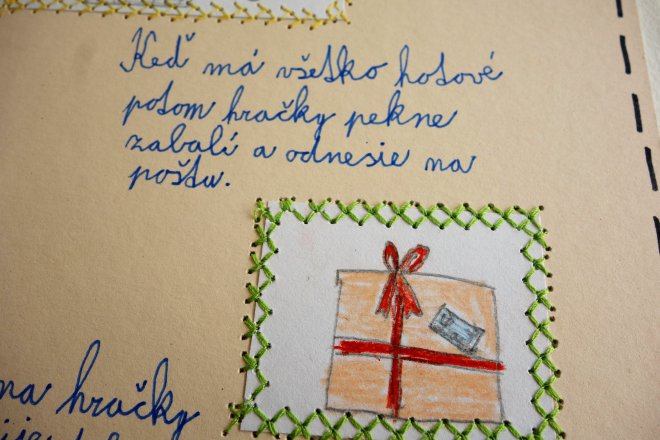 Keď má všetko hotové
potom hračky pekne
zabalí a odnesie na
poštu.
na hračky